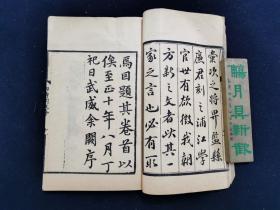 彙次之將畀監縣
庚君刻之浦江學
官世有欲徵我朝
方新之文者此其
家之言也必有取
焉因題其卷首以
俟至正十年八月丁
祀日武威余闕序